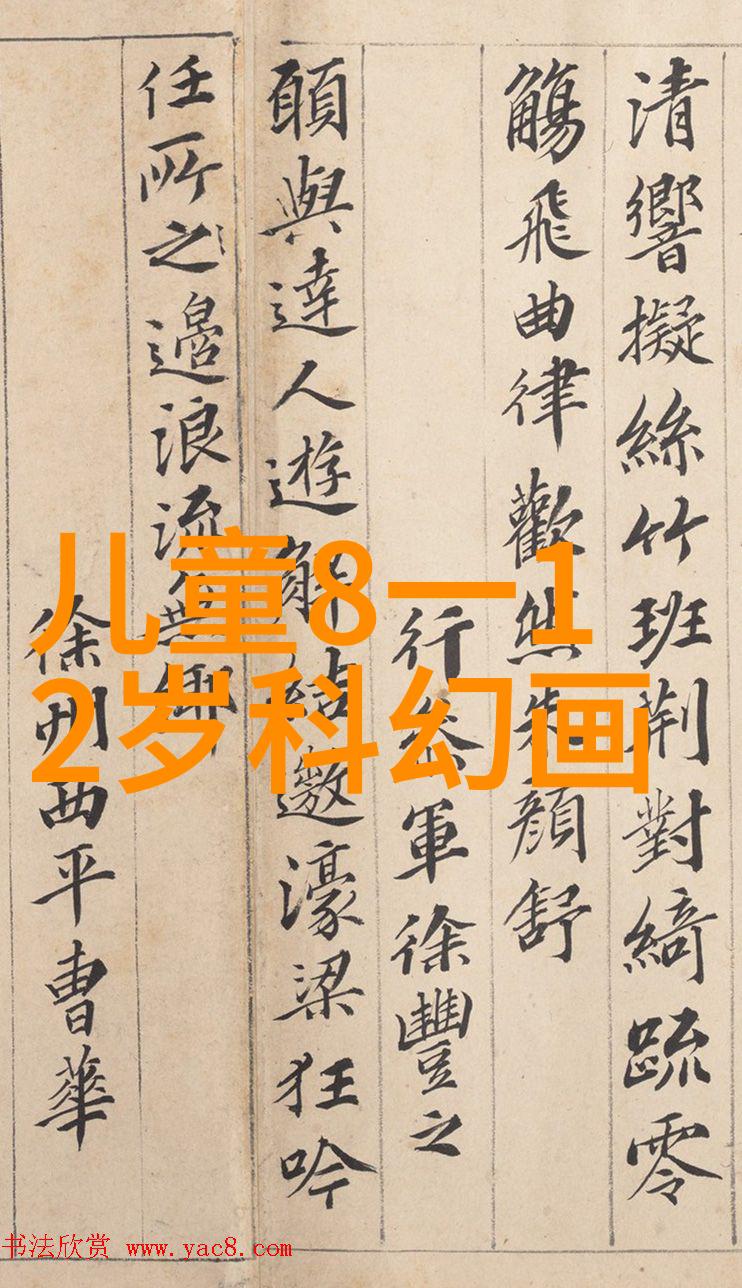 清響擬絲竹班荆對綺疏零
觴飛曲律歡然朱顏舒
行參軍徐豐之
願與達人遊解結遨濠梁狂吟
任所之邉浪流無鄉
徐州西平曹華
儿童8一1
2岁科幻画
书法欣赏 www.yac8.com